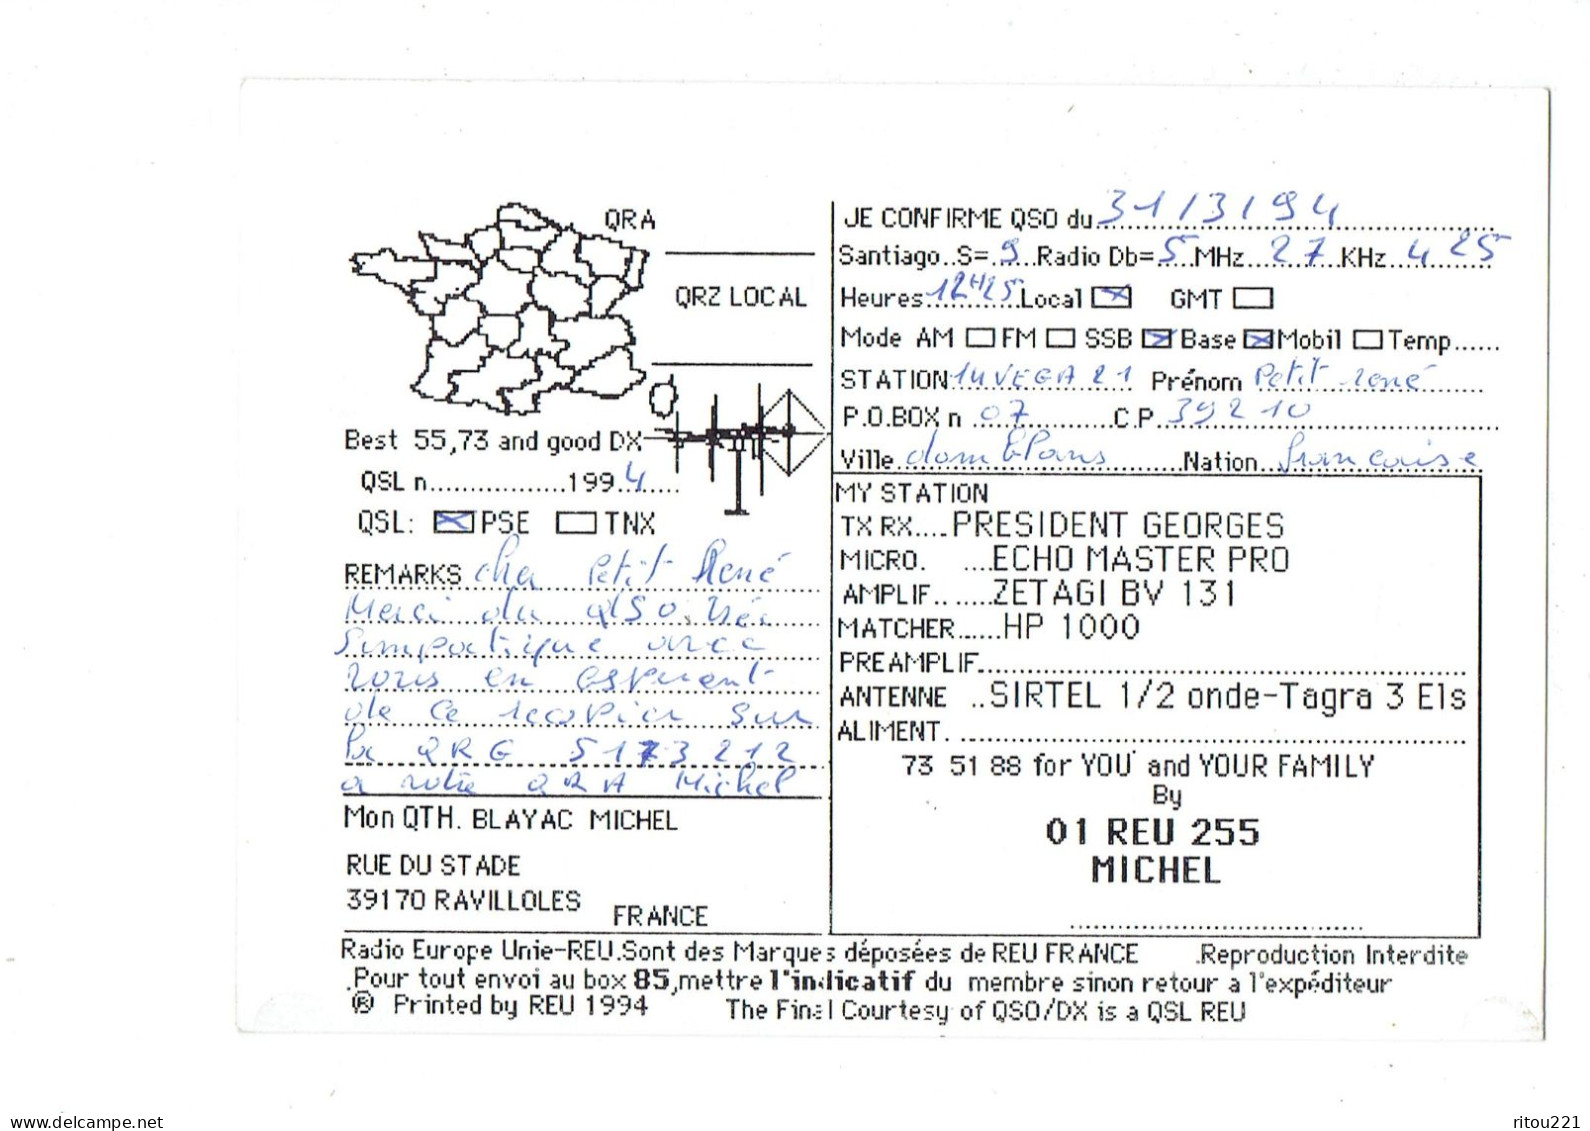 QRA
QRZ LOCAL
Best 55,73 and good DX
QSL n.................1994......
QSL: PSE TNX
REMARKS cher Petit René
Merci du QSO, très
Simpatique avec
vous en esperent
de ce recopier sur
la QRG 5173212
a votre QRA Michel
Mon QTH. BLAYAC MICHEL
RUE DU STADE
39170 RAVILLOLES
FRANCE
JE CONFIRME QSO du 31/3/94
Santiago..S=.9....Radio Db=5...MHz...27...KHz...425
Heures 12H25 Local GMT
Mode AM FM SSB Base Mobil Temp......
STATION 14VEGA21 Prénom Petit rené
P.O.BOX n .07..........C.P. 39210
Ville domblans Nation francaise
MY STATION
TX RX....PRESIDENT GEORGES
MICRO. ....ECHO MASTER PRO
AMPLIF.. ......ZETAGI BV 131
MATCHER......HP 1000
PREAMPLIF
ANTENNE ..SIRTEL 1/2 onde-Tagra 3 Els
ALIMENT.
73 51 88 for YOU and YOUR FAMILY
By
01 REU 255
MICHEL
Radio Europe Unie-REU.Sont des Marques déposées de REU FRANCE .Reproduction Interdite
.Pour tout envoi au box 85,mettre l'indicatif du membre sinon retour a l'expéditeur
® Printed by REU 1994 The Final Courtesy of QSO/DX is a QSL REU
ritou221